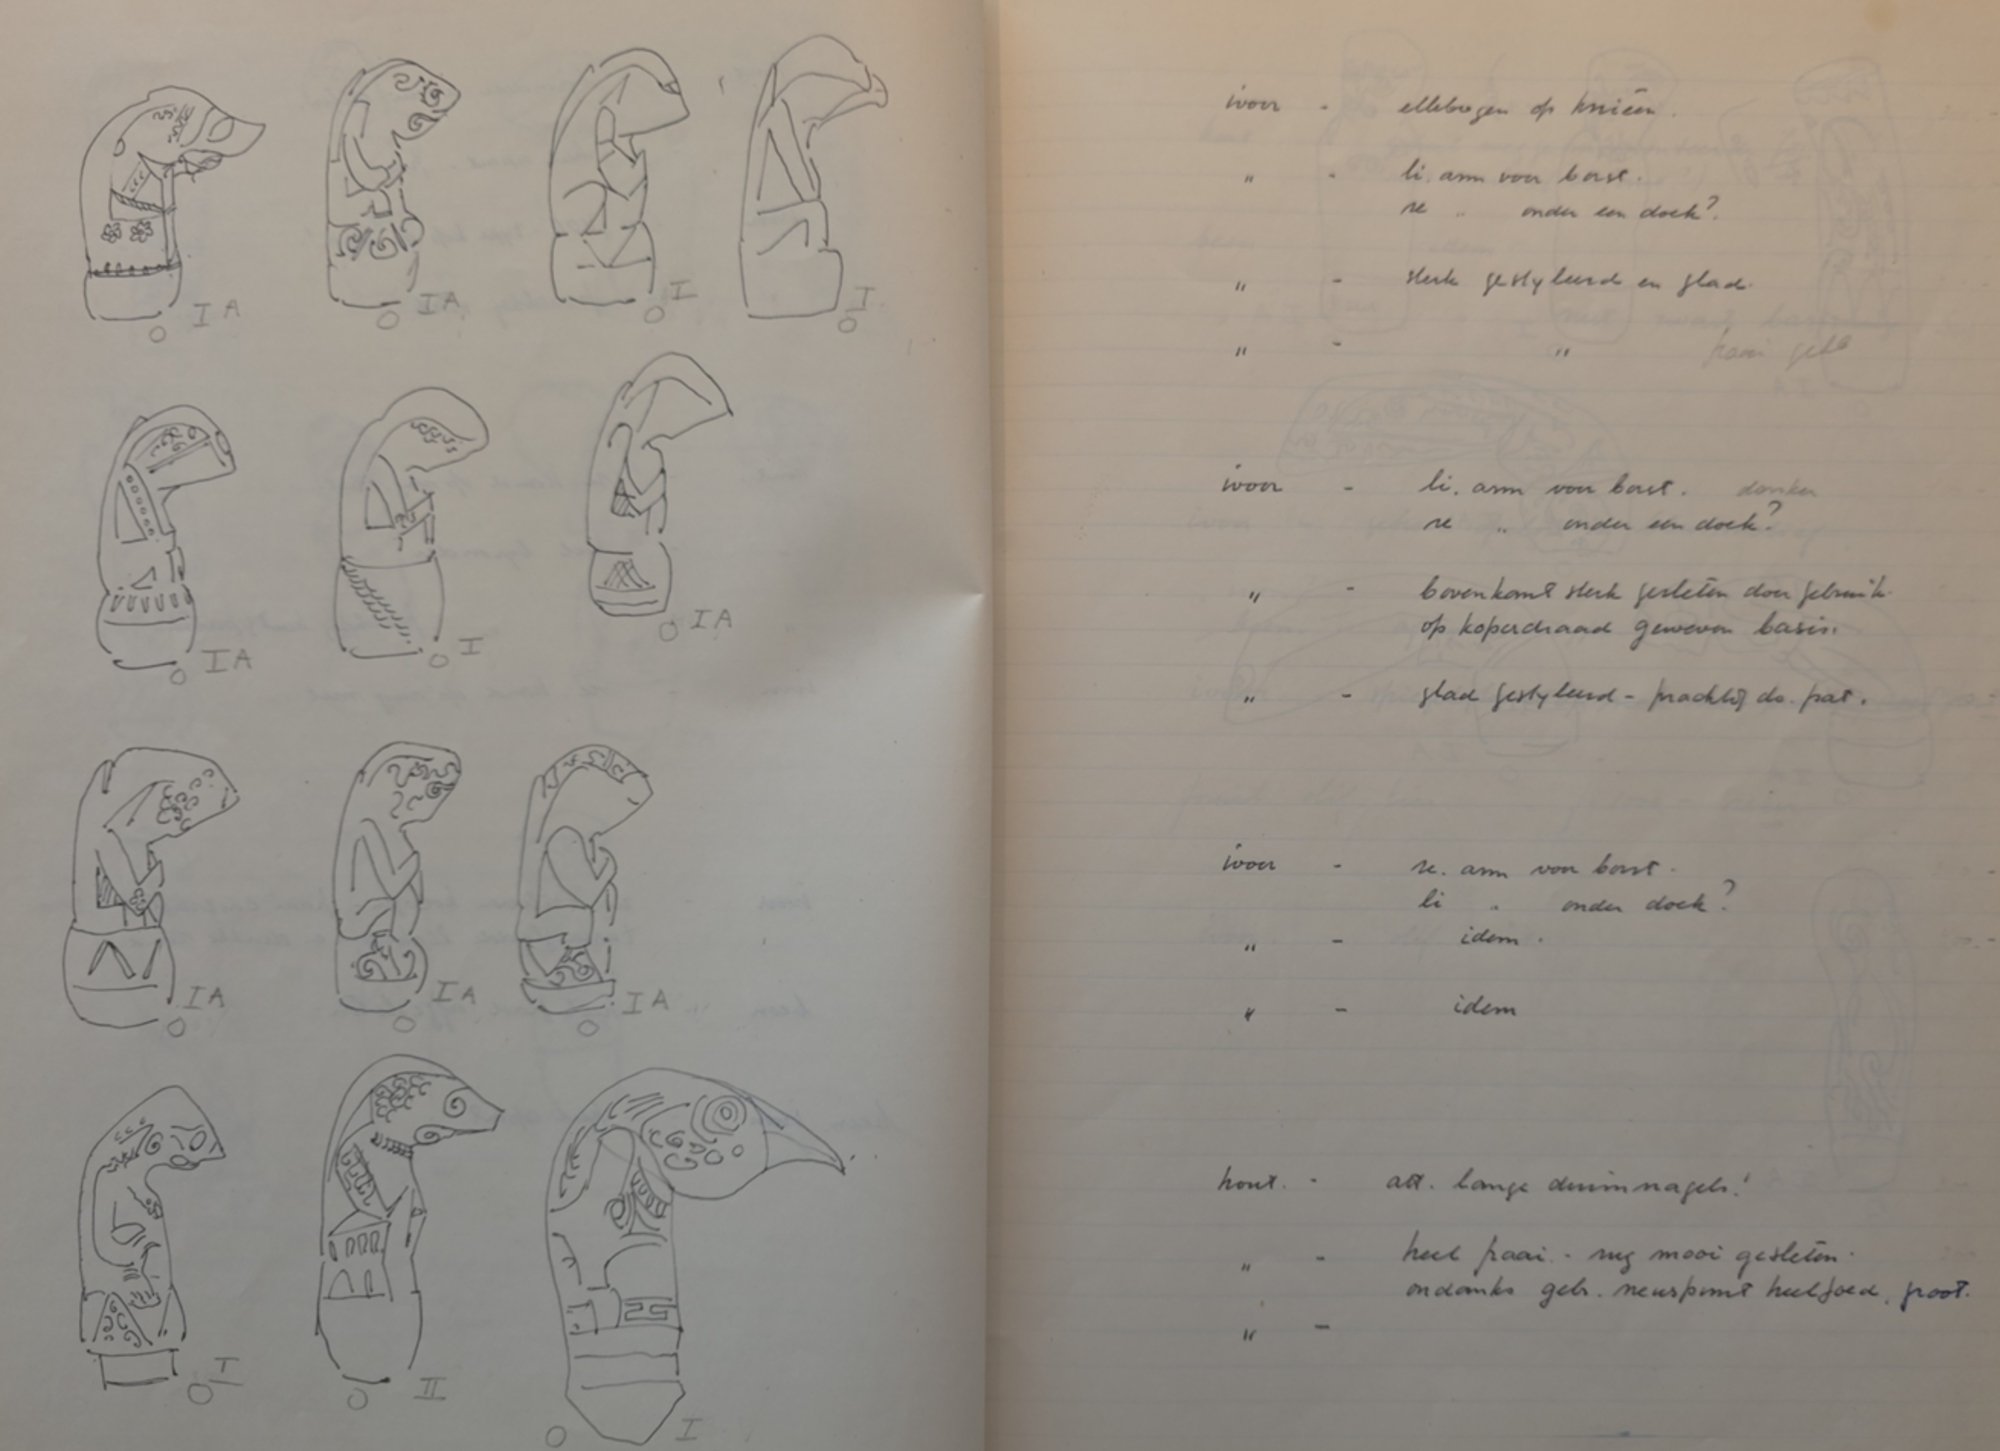 I A
I A
I
I
I A
I
I A
I A
I A
I A
I
II
I
ivoor - ellebogen op knieën.
" - li. arm voor borst.
re " onder een doek?
" - sterk gestyleerd en glad.
" - " fraai geld
ivoor - li. arm voor borst. donker
re " onder een doek?
" - bovenkant sterk gesleten door gebruik
op koperdraad geweven basis.
" - glad gestyleerd - prachtig do. pat.
ivoor - re. arm voor borst.
li " onder doek?
" - idem.
" - idem
hout. - att. lange duimnagels!
" - heel fraai. - rug mooi gesleten.
ondanks geb. neuspunt heel goed, groot.
" -